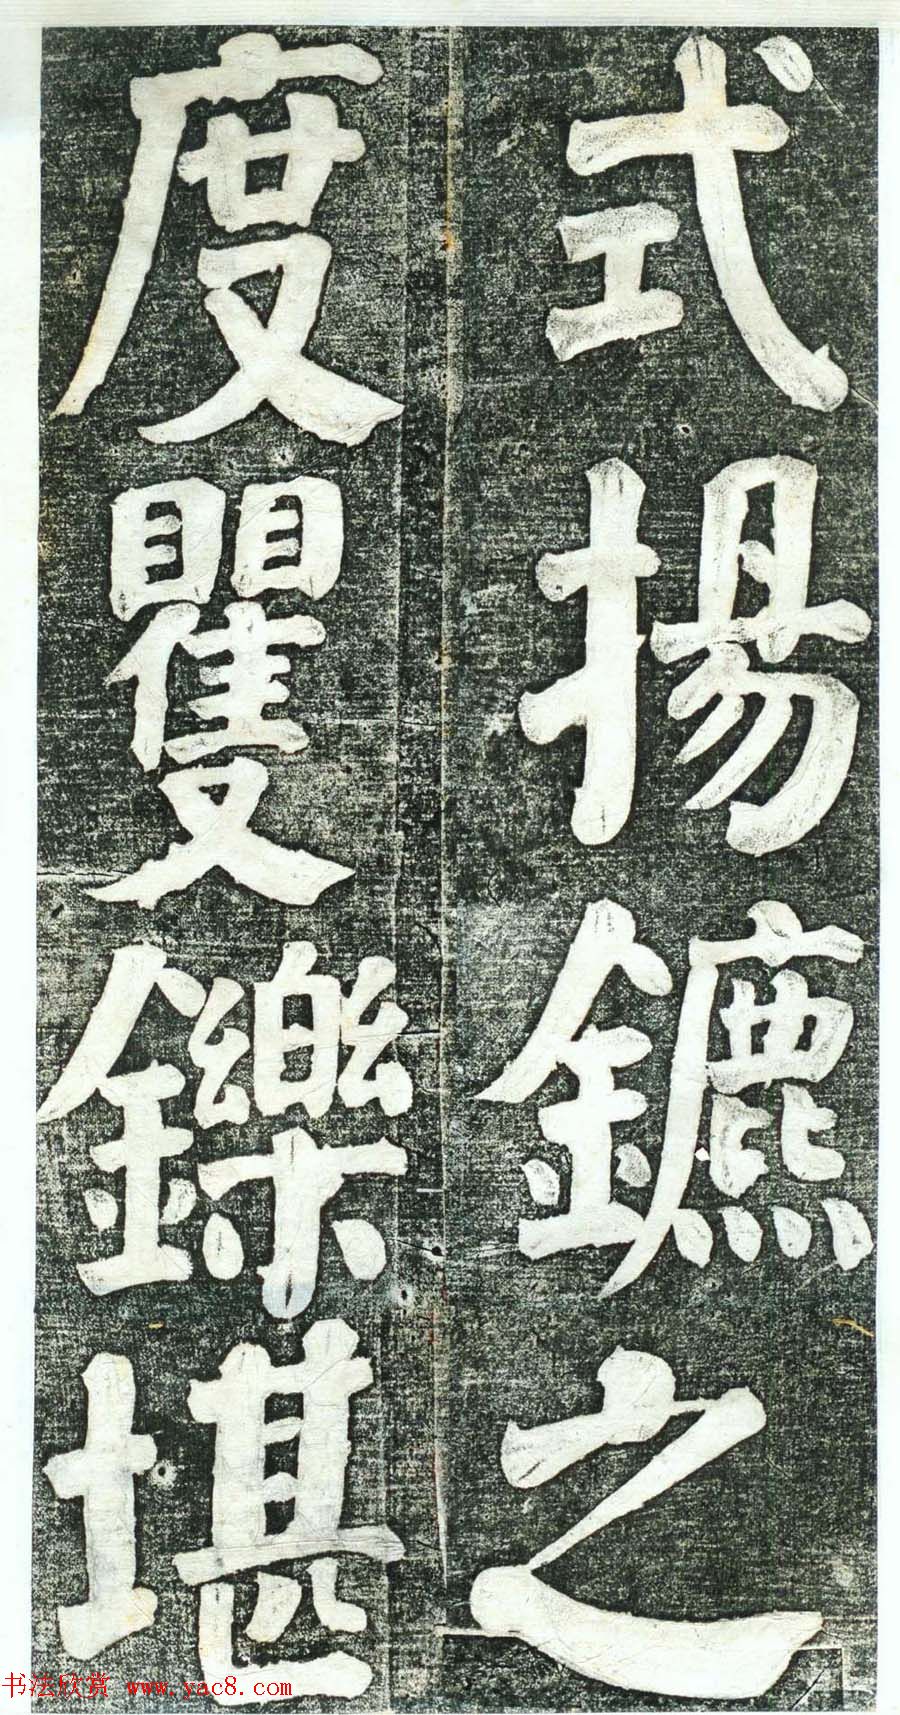 式揚鑣之
度矍鑠堪
书法欣赏 www.yac8.com